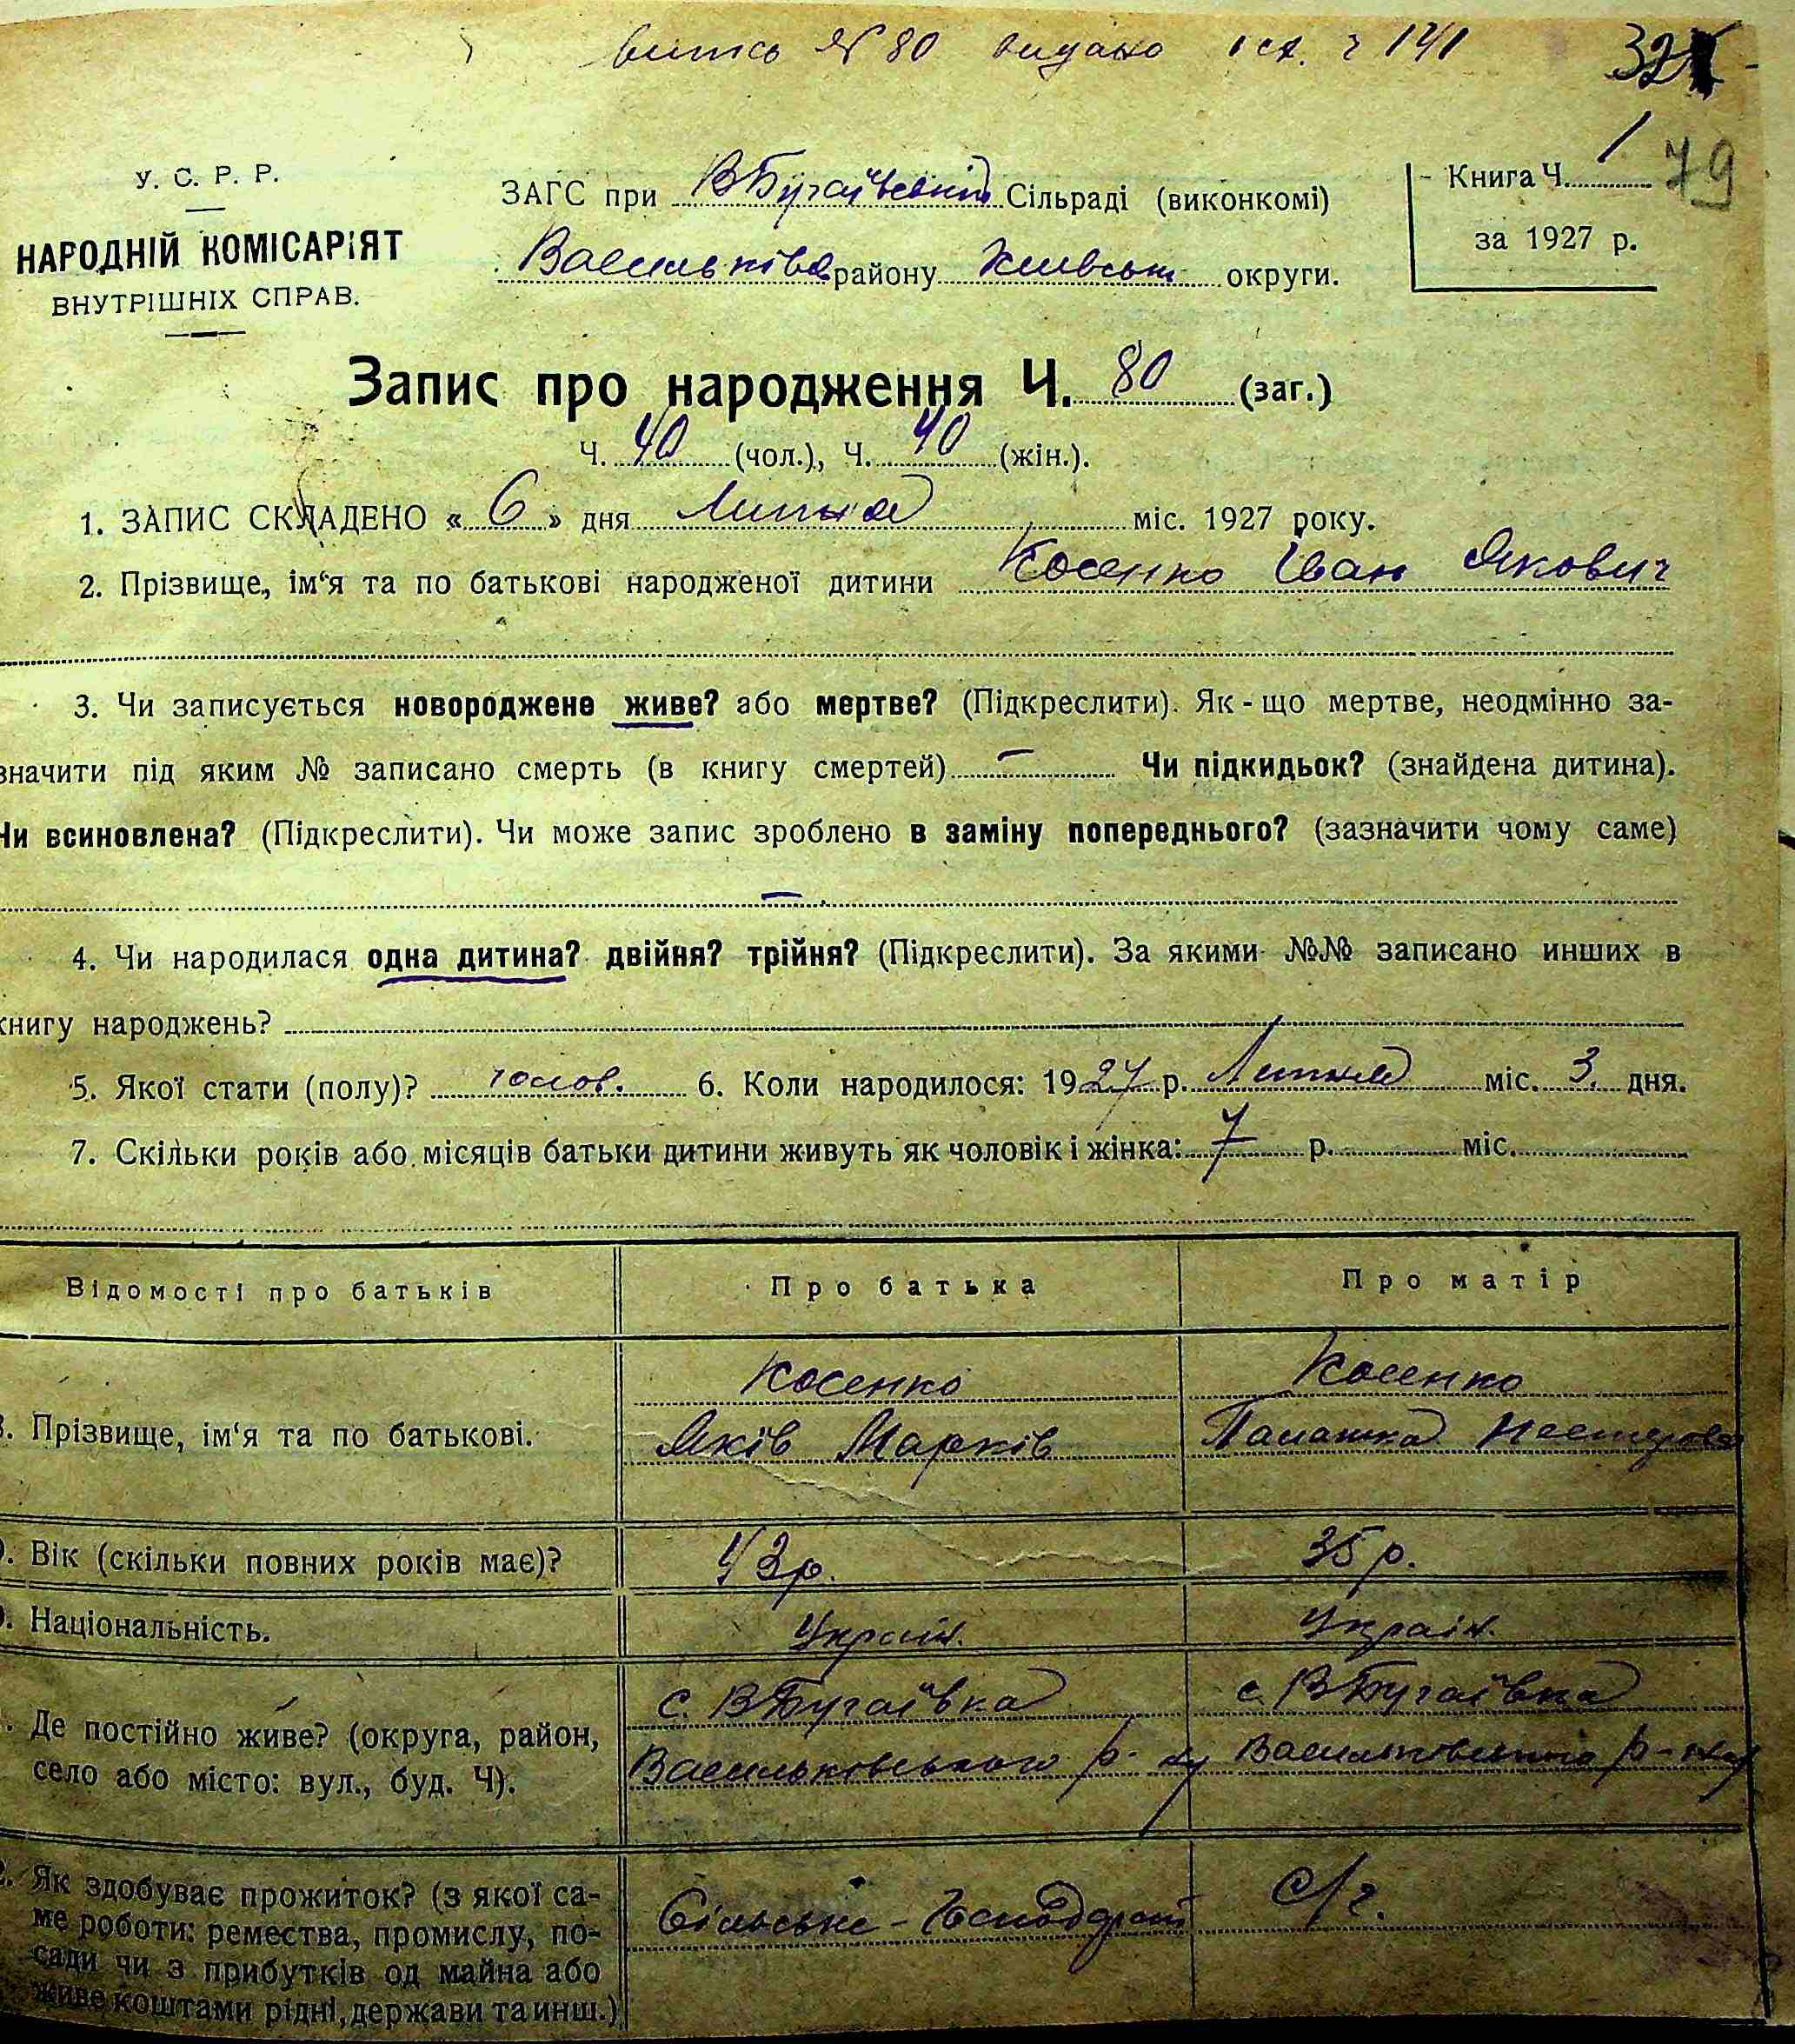 випис № 80 видано
32
У. С. Р. Р.
НАРОДНІЙ КОМІСАРІЯТ
ВНУТРІШНІХ СПРАВ.
ЗАГС при ВБугаївській Сільраді (виконкомі)
Васильків району Київськ округи.
Книга Ч. 1 79
за 1927 р.
Запис про народження Ч. 80 (заг.)
Ч. 40 (чол.), Ч. 40 (жін.).
1. ЗАПИС СКЛАДЕНО « 6 » дня Липня міс. 1927 року.
2. Прізвище, ім‘я та по батькові народженої дитини Косенко Іван Якович
3. Чи записується новороджене живе? або мертве? (Підкреслити). Як - що мертве, неодмінно за-
значити під яким № записано смерть (в книгу смертей) — Чи підкидьок? (знайдена дитина).
Чи всиновлена? (Підкреслити). Чи може запис зроблено в заміну попереднього? (зазначити чому саме)
—
4. Чи народилася одна дитина? двійня? трійня? (Підкреслити). За якими №№ записано инших в
книгу народжень?
5. Якої стати (полу)? чолов. 6. Коли народилося: 1927 р. Липня міс. 3. дня.
7. Скільки років або місяців батьки дитини живуть як чоловік і жінка: 7 р. міс.
Відомості про батьків Про батька Про матір
8. Прізвище, ім‘я та по батькові.
Косенко
Яків Марків
Косенко
Палашка Нестерова
9. Вік (скільки повних років має)? 43р. 35 р.
. Національність. Україн. Україн.
. Де постійно живе? (округа, район,
село або місто: вул., буд. Ч).
с. ВБугаївка
Васильковського р-ну
с. ВБугаївка
Васильковського р-ну
. Як здобуває прожиток? (з якої са-
ме роботи: ремества, промислу, по-
сади чи з прибутків од майна або
живе коштами рідні, держави та инш.)
Сільське-
С/г.